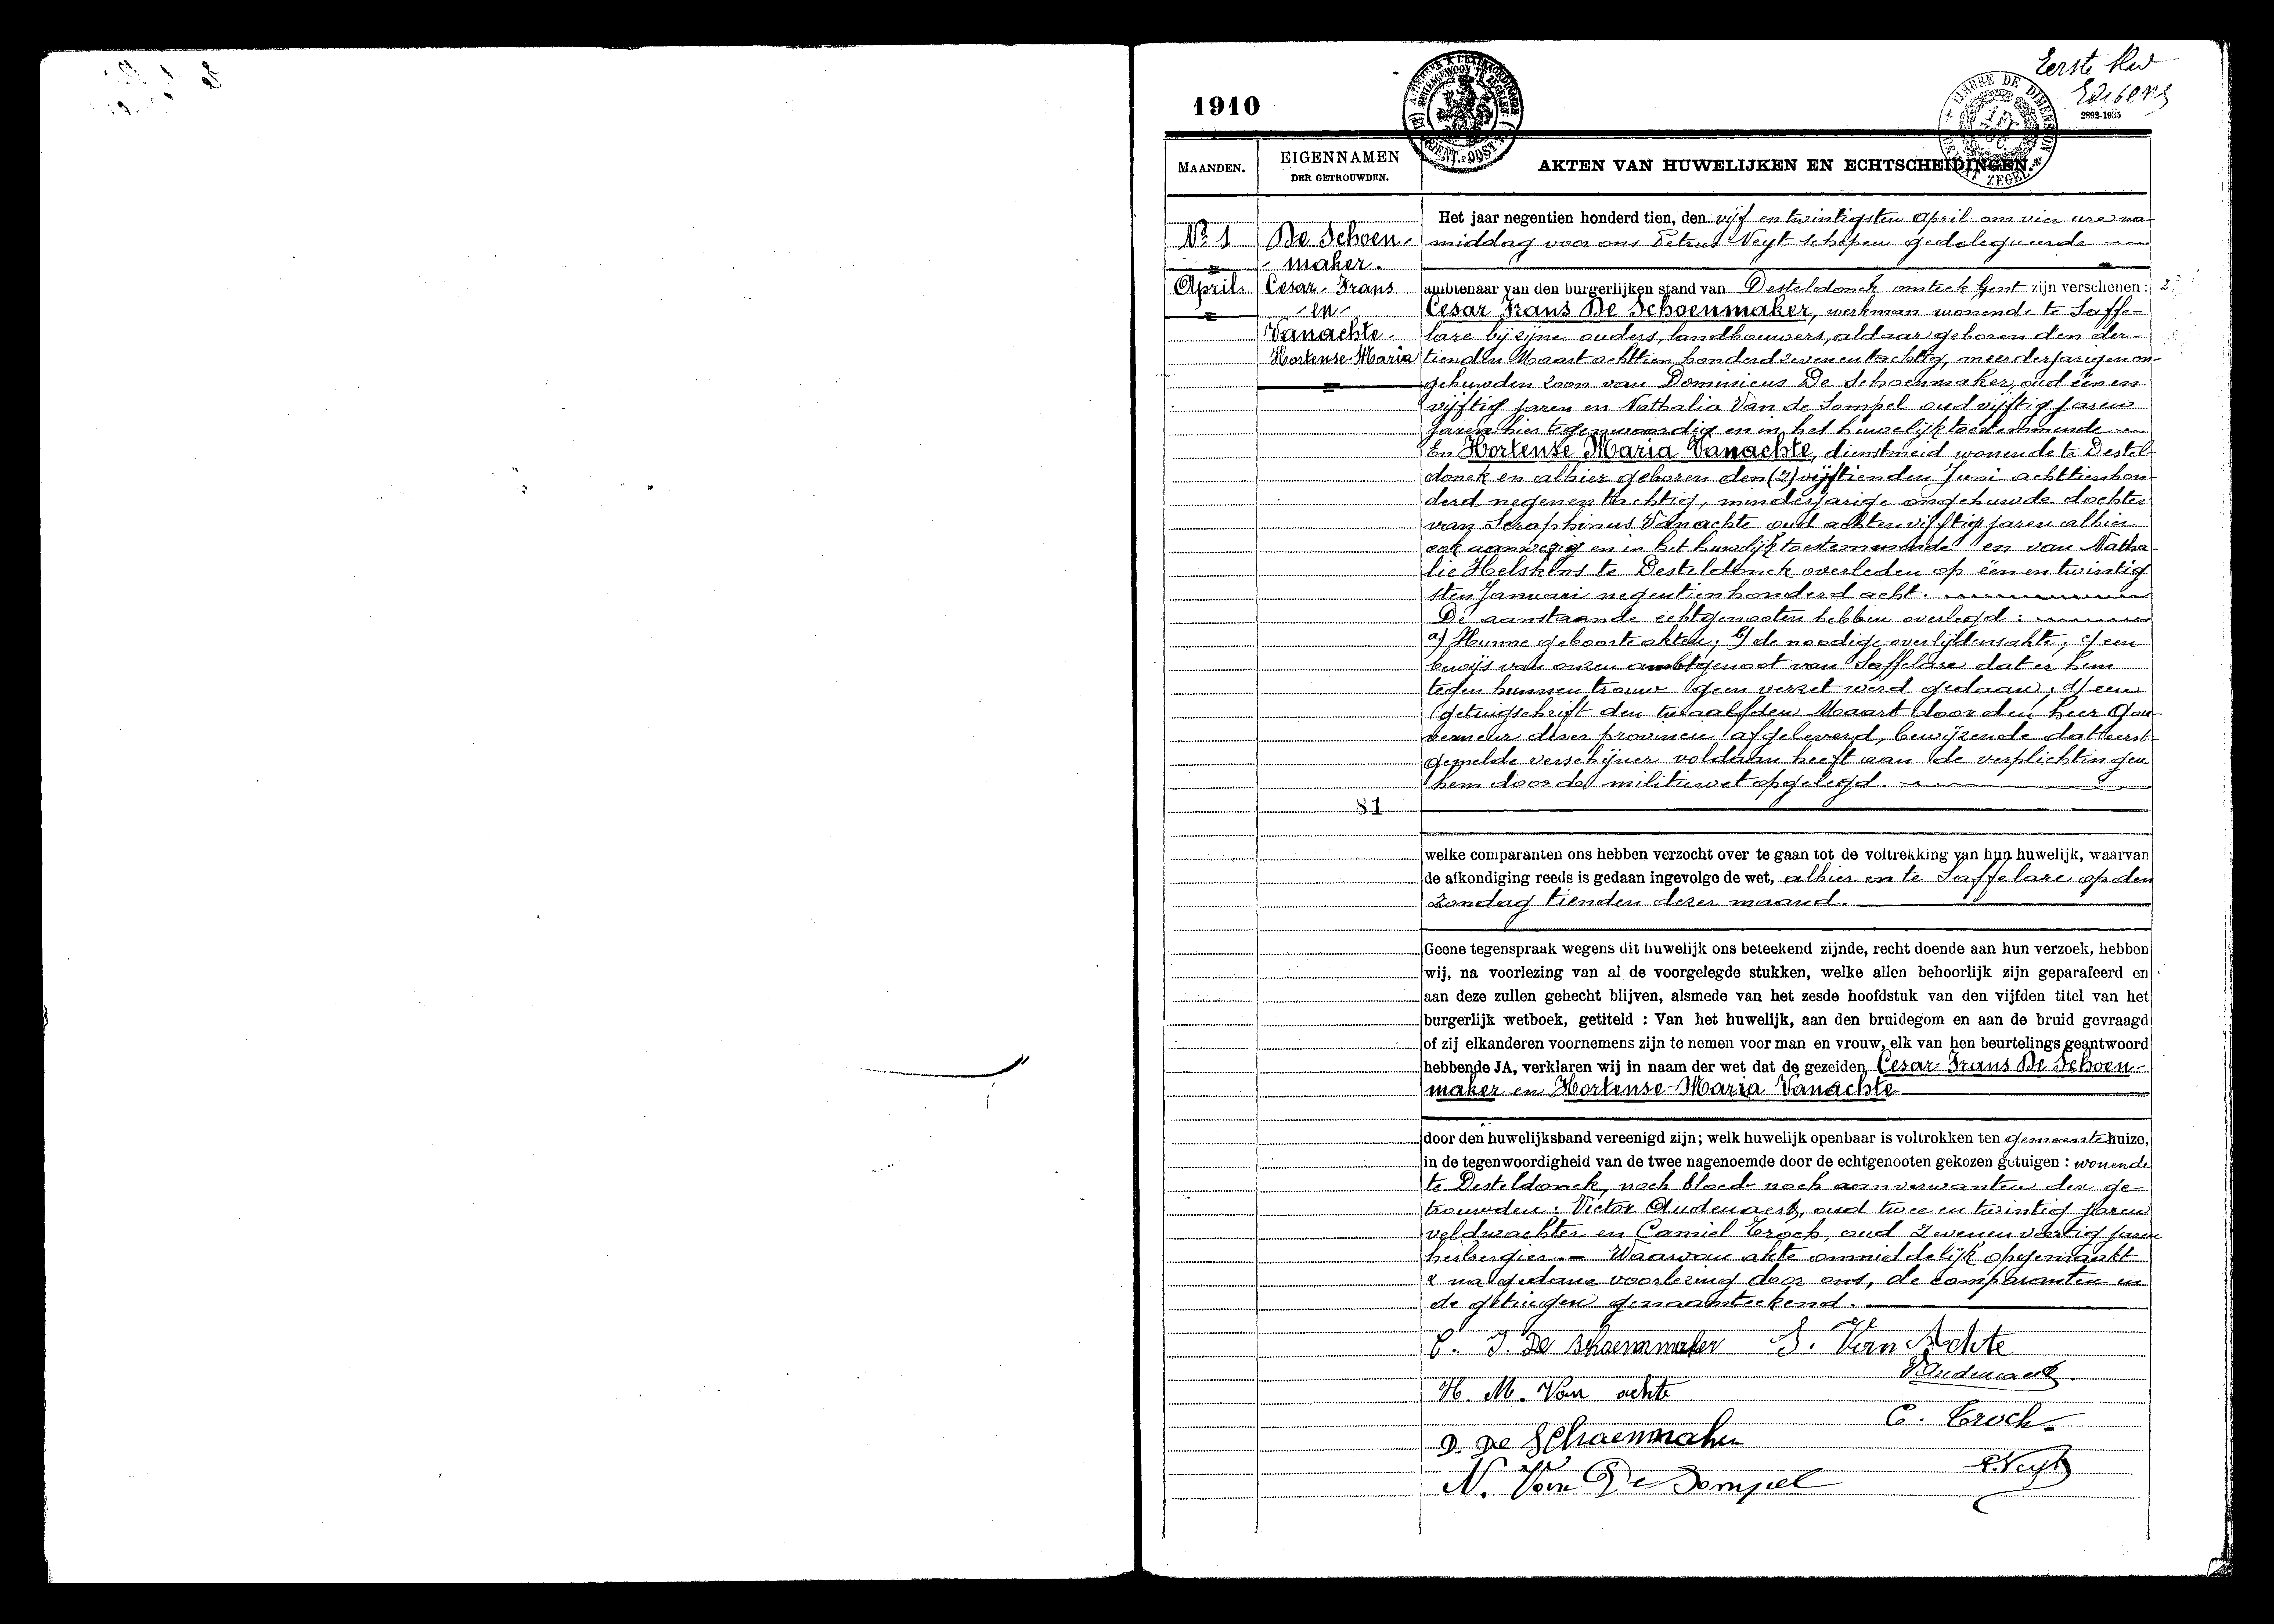 Eerste
1910
2892-1935
MAANDEN.
EIGENNAMEN
DER GETROUWDEN.
AKTEN VAN HUWELIJKEN EN ECHTSCHEIDINGEN.
TIMBRE DE DIMENSION
ZEGEL
No 1
April
De Schoen-
maker.
Cesar-Frans
-en-
Vanachte-
Hortense-Maria
81
Het jaar negentien honderd tien, den vijf en twintigsten April om vier ure na-
middag voor ons Petrus Neyt schepen gedelegueerde
ambtenaar van den burgerlijken stand van Desteldonck omtrek Gent zijn verschenen :
Cesar Frans De Schoenmaker, werkman wonende te Saffe-
lare bij zijne ouders, landbouwers, aldaar geboren den der-
tienden Maart achttien honderd zevenentachtig, meerderjarigen on-
gehuwden zoon van Dominicus De Schoenmaker, oud één en
vijftig jaren en Nathalia Van de Sompel oud vijftig jaren
jaren hier tegenwoordig en in het huwelijk toestemmende
En Hortense Maria Vanachte, dienstmeid wonende te Destel-
donck en alhier geboren den (2) vijftienden Juni achttienhon-
derd negenentachtig, minderjarige ongehuwde dochter
van Seraphinus Vanachte oud achtenvijftig jaren alhier
ook aanwezig en in het huwelijk toestemmende en van Natha-
lie Helskens te Desteldonck overleden op één en twintig
sten Januari negentienhonderd acht.
De aanstaande echtgenooten hebben overlegd :
a) Hunne geboorteakten; b) de noodige overlijdensakte, c) een
bewijs van onzen ambtgenoot van Saffelare dat er hem
tegen hunnen trouw geen verzet werd gedaan, d) een
getuigschrift den twaalfden Maart door den heer Gou-
verneur dezer provincie afgeleverd, bewijzende dat eerst-
gemelde verschijner voldaan heeft aan de verplichtingen
hem door de militiewet opgelegd.
welke comparanten ons hebben verzocht over te gaan tot de voltrekking van hun huwelijk, waarvan
de afkondiging reeds is gedaan ingevolge de wet, alhier en te Saffelare op den
zondag tienden dezer maand.
Geene tegenspraak wegens dit huwelijk ons beteekend zijnde, recht doende aan hun verzoek, hebben
wij, na voorlezing van al de voorgelegde stukken, welke allen behoorlijk zijn geparafeerd en
aan deze zullen gehecht blijven, alsmede van het zesde hoofdstuk van den vijfden titel van het
burgerlijk wetboek, getiteld : Van het huwelijk, aan den bruidegom en aan de bruid gevraagd
of zij elkanderen voornemens zijn te nemen voor man en vrouw, elk van hen beurtelings geantwoord
hebbende JA, verklaren wij in naam der wet dat de gezeiden Cesar Frans De Schoen-
maker en Hortense-Maria Vanachte
door den huwelijksband vereenigd zijn; welk huwelijk openbaar is voltrokken ten gemeentehuize,
in de tegenwoordigheid van de twee nagenoemde door de echtgenooten gekozen getuigen : wonende
te Desteldonck, noch bloed- noch aanverwanten der ge-
trouwden : Victor Audenaert, oud twee en twintig jaren
veldwachter en Camiel Troch, oud zevenenveertig jaren
herbergier. - Waarvan akte onmiddelijk opgemaakt
& na gedane voorlezing door ons, de comparanten en
de getuigen genaamteekend.
C. F. De Schoenmaker S. Van Achte
V. Audenaert
H. M. Van achte
C. Troch
D. De Schoenmaker
P. Neyt
N. Van De Sompel